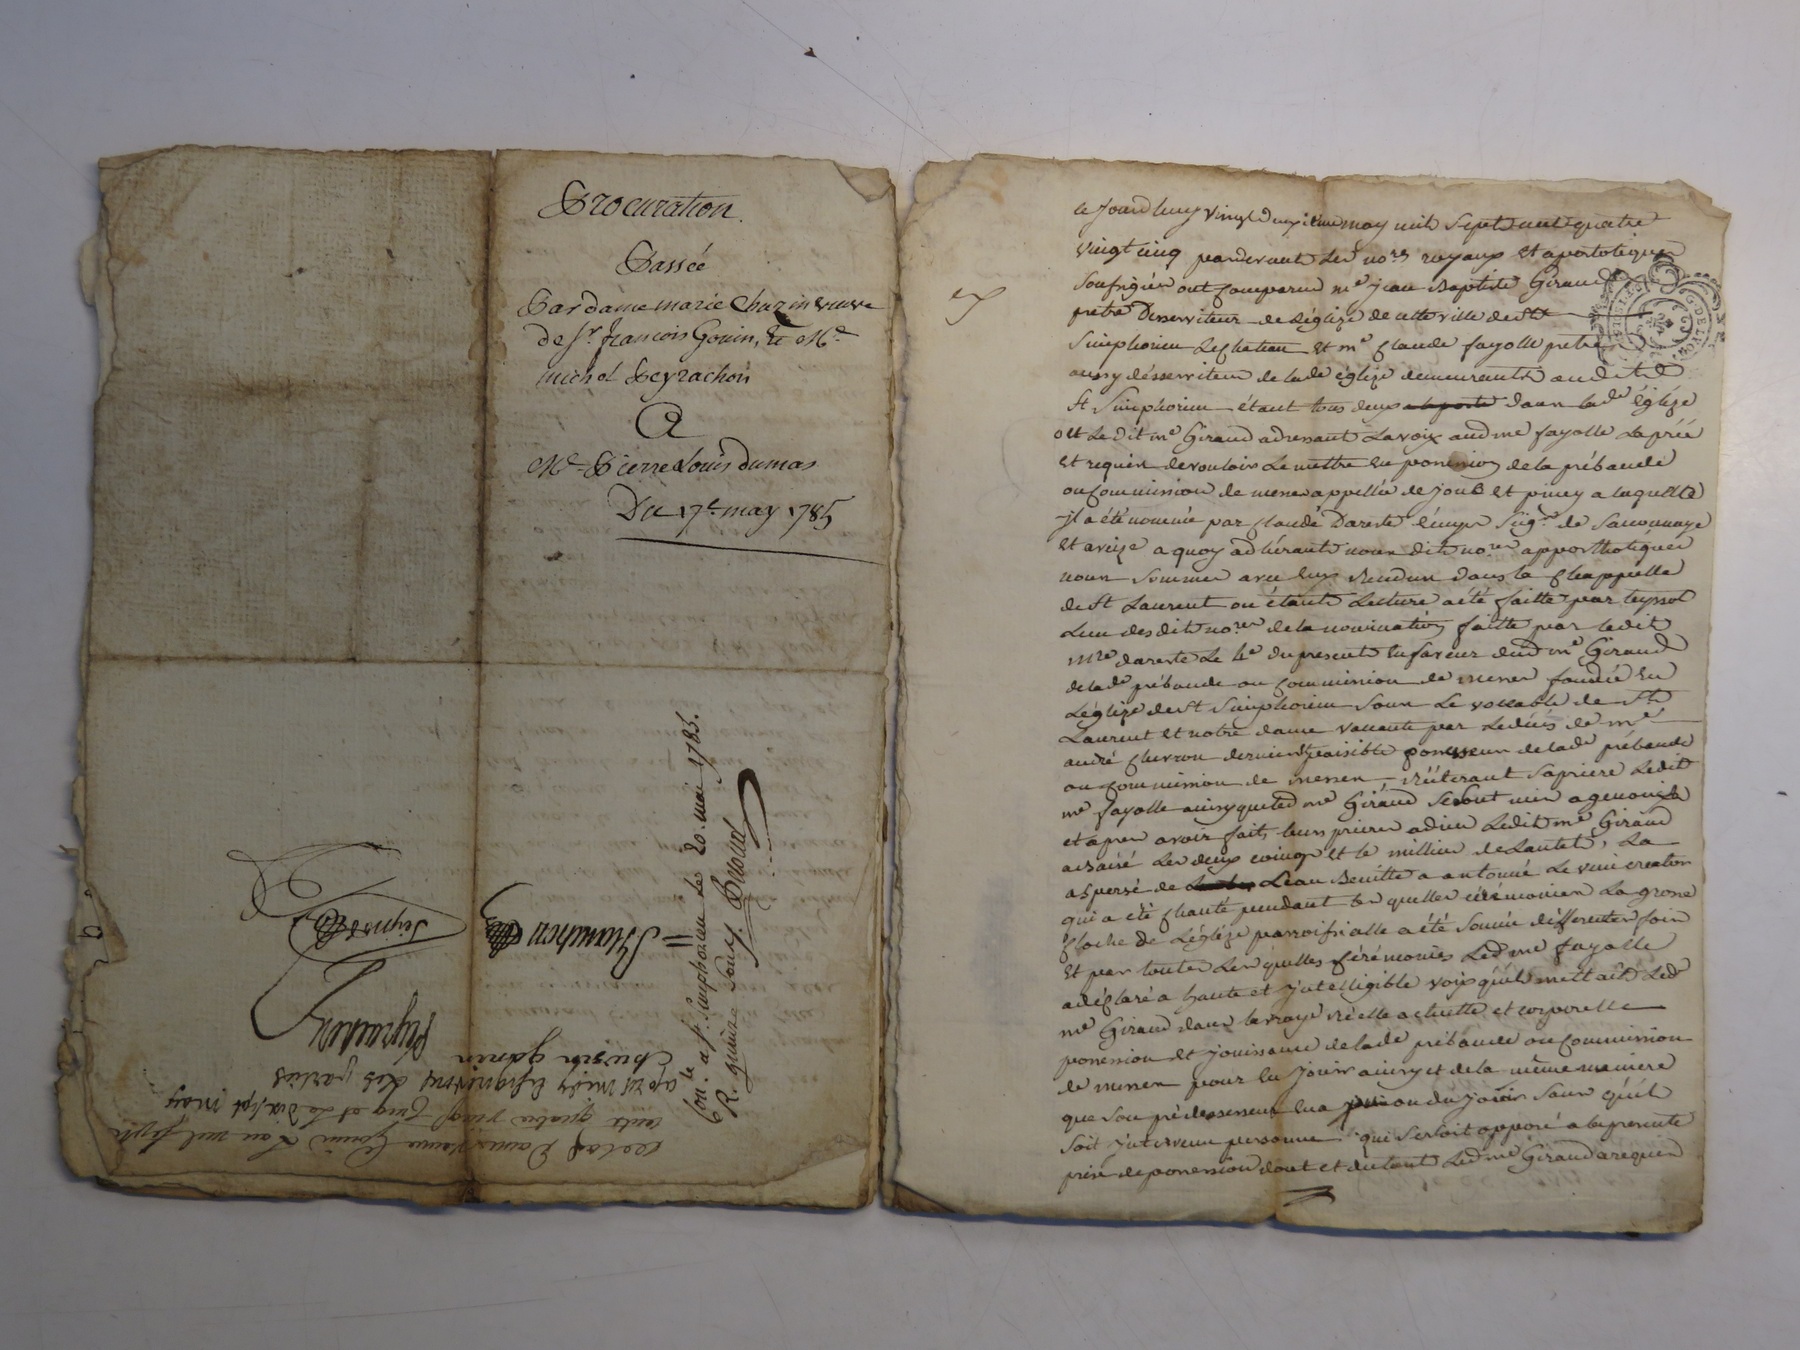 Procuration.
Passée
Par dame marie Chazin veuve
de Sr. françois Gonin, et Me.
michel Peyrachon
A
Me. Pierre Louis dumas
Du 17e. may 1785
Con.le a St. Simphorien le 20. mai 1785.
R. quinze sous. Bruand
Peyrachon
apres midy les parties
cents quatre vingt cinq et le dix sept may
Gonin L'an mil sept
ce Jourdhuy vingt deuxieme may mil sept cent quatre
vingt cinq pardevant les nores royaux et apostoliques
soussignés ont comparu me jean Baptiste Giraud
pretre Desserviteur de léglize de cette ville de St
Simphorien le chateau et me Claude fayolle pretre
aussy désserviteur de lade églize demeurants audit
St Simphorien étant tous deux a la porte dans lade églize
et Le dit me Giraud adressant la voix aud me fayolle La prié
et requis de vouloir Le mettre en possession de la prébande
ou Commission de messes appellée de Joub et piney a laquelle
jl a été nommé par Claude Dareste écuyer Sgr. de Saconnaye
et aveize a quoy adhérants nous dits nores apposthotiques
nous sommes avec eux rendus dans la Chappelle
de St Laurent ou étants Lecture a été faitte par
Lun desdits nores de la nomination faitte par ledit
mre dareste Le 4e du present en faveur dud me Giraud
de lade prébande ou Commission de messes fondée en
Léglize de St Simphorien sous Le vocable de St
Laurent et notre dame vaccante par Le décès de me
andré Chevron dernier paisible possesseur de lade prébande
ou Commission de messes, réiterant sa priere Ledit
me fayolle ainsy que led me Giraud se sont mis a genoux
et apres avoir fait leurs prieres a dieu Ledit me Giraud
a baisé Les deux coings et le millieu de Lautel, La
aspersé de Leau Benitte a antonné Le veni creator
qui a été chanté pendant les quelles cérémonies La grosse
Cloche de Léglize parroissialle a été sonnée différentes fois
et par toutes Les quelles Cérémonies Led me fayolle
a déclaré a haute et jntelligible voix qu'il mettait Led
me Giraud dans la vraye réelle actuelle et corporelle
possession et jouissance de lade prébande ou Commission
de messes pour en jouir ainsy et de la même maniere
que son prédesesseur en a ou du jouir sans qu'il
soit jntervenu personne qui se soit opposé a la presente
prise de possession dont et du tout Led me Giraud a requis